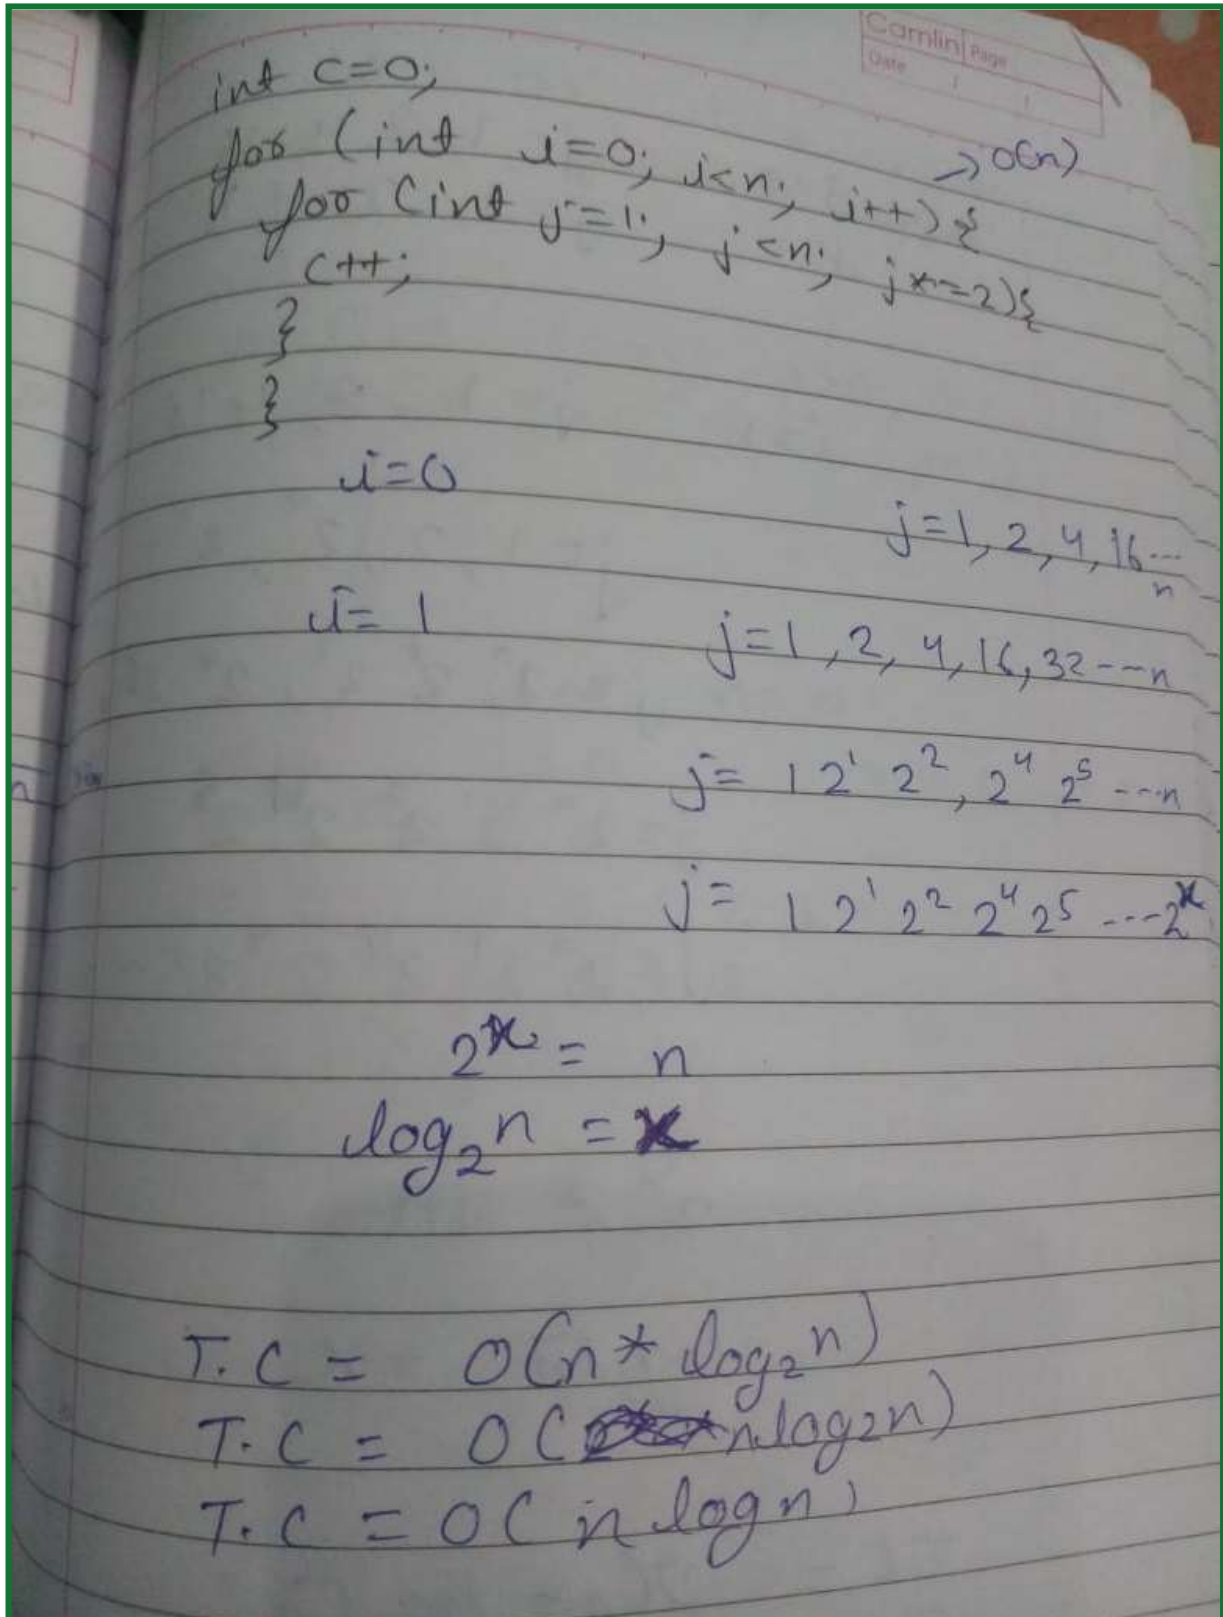 Camlin Page
Date / /
int c=0;
for (int i=0; i<n; i++){ → O(n)
for (int j=1; j<n; j*=2){
c++;
}
}
i=0
j=1, 2, 4, 16...n
i=1 j=1, 2, 4, 16, 32---n
j= 1 2¹ 2², 2⁴ 2⁵ ---n
j= 1 2¹ 2² 2⁴ 2⁵ ---2ˣ
2ˣ = n
log₂n = x
T.C = O(n* log₂n)
T.C = O( n log₂n)
T.C = O( n logn)